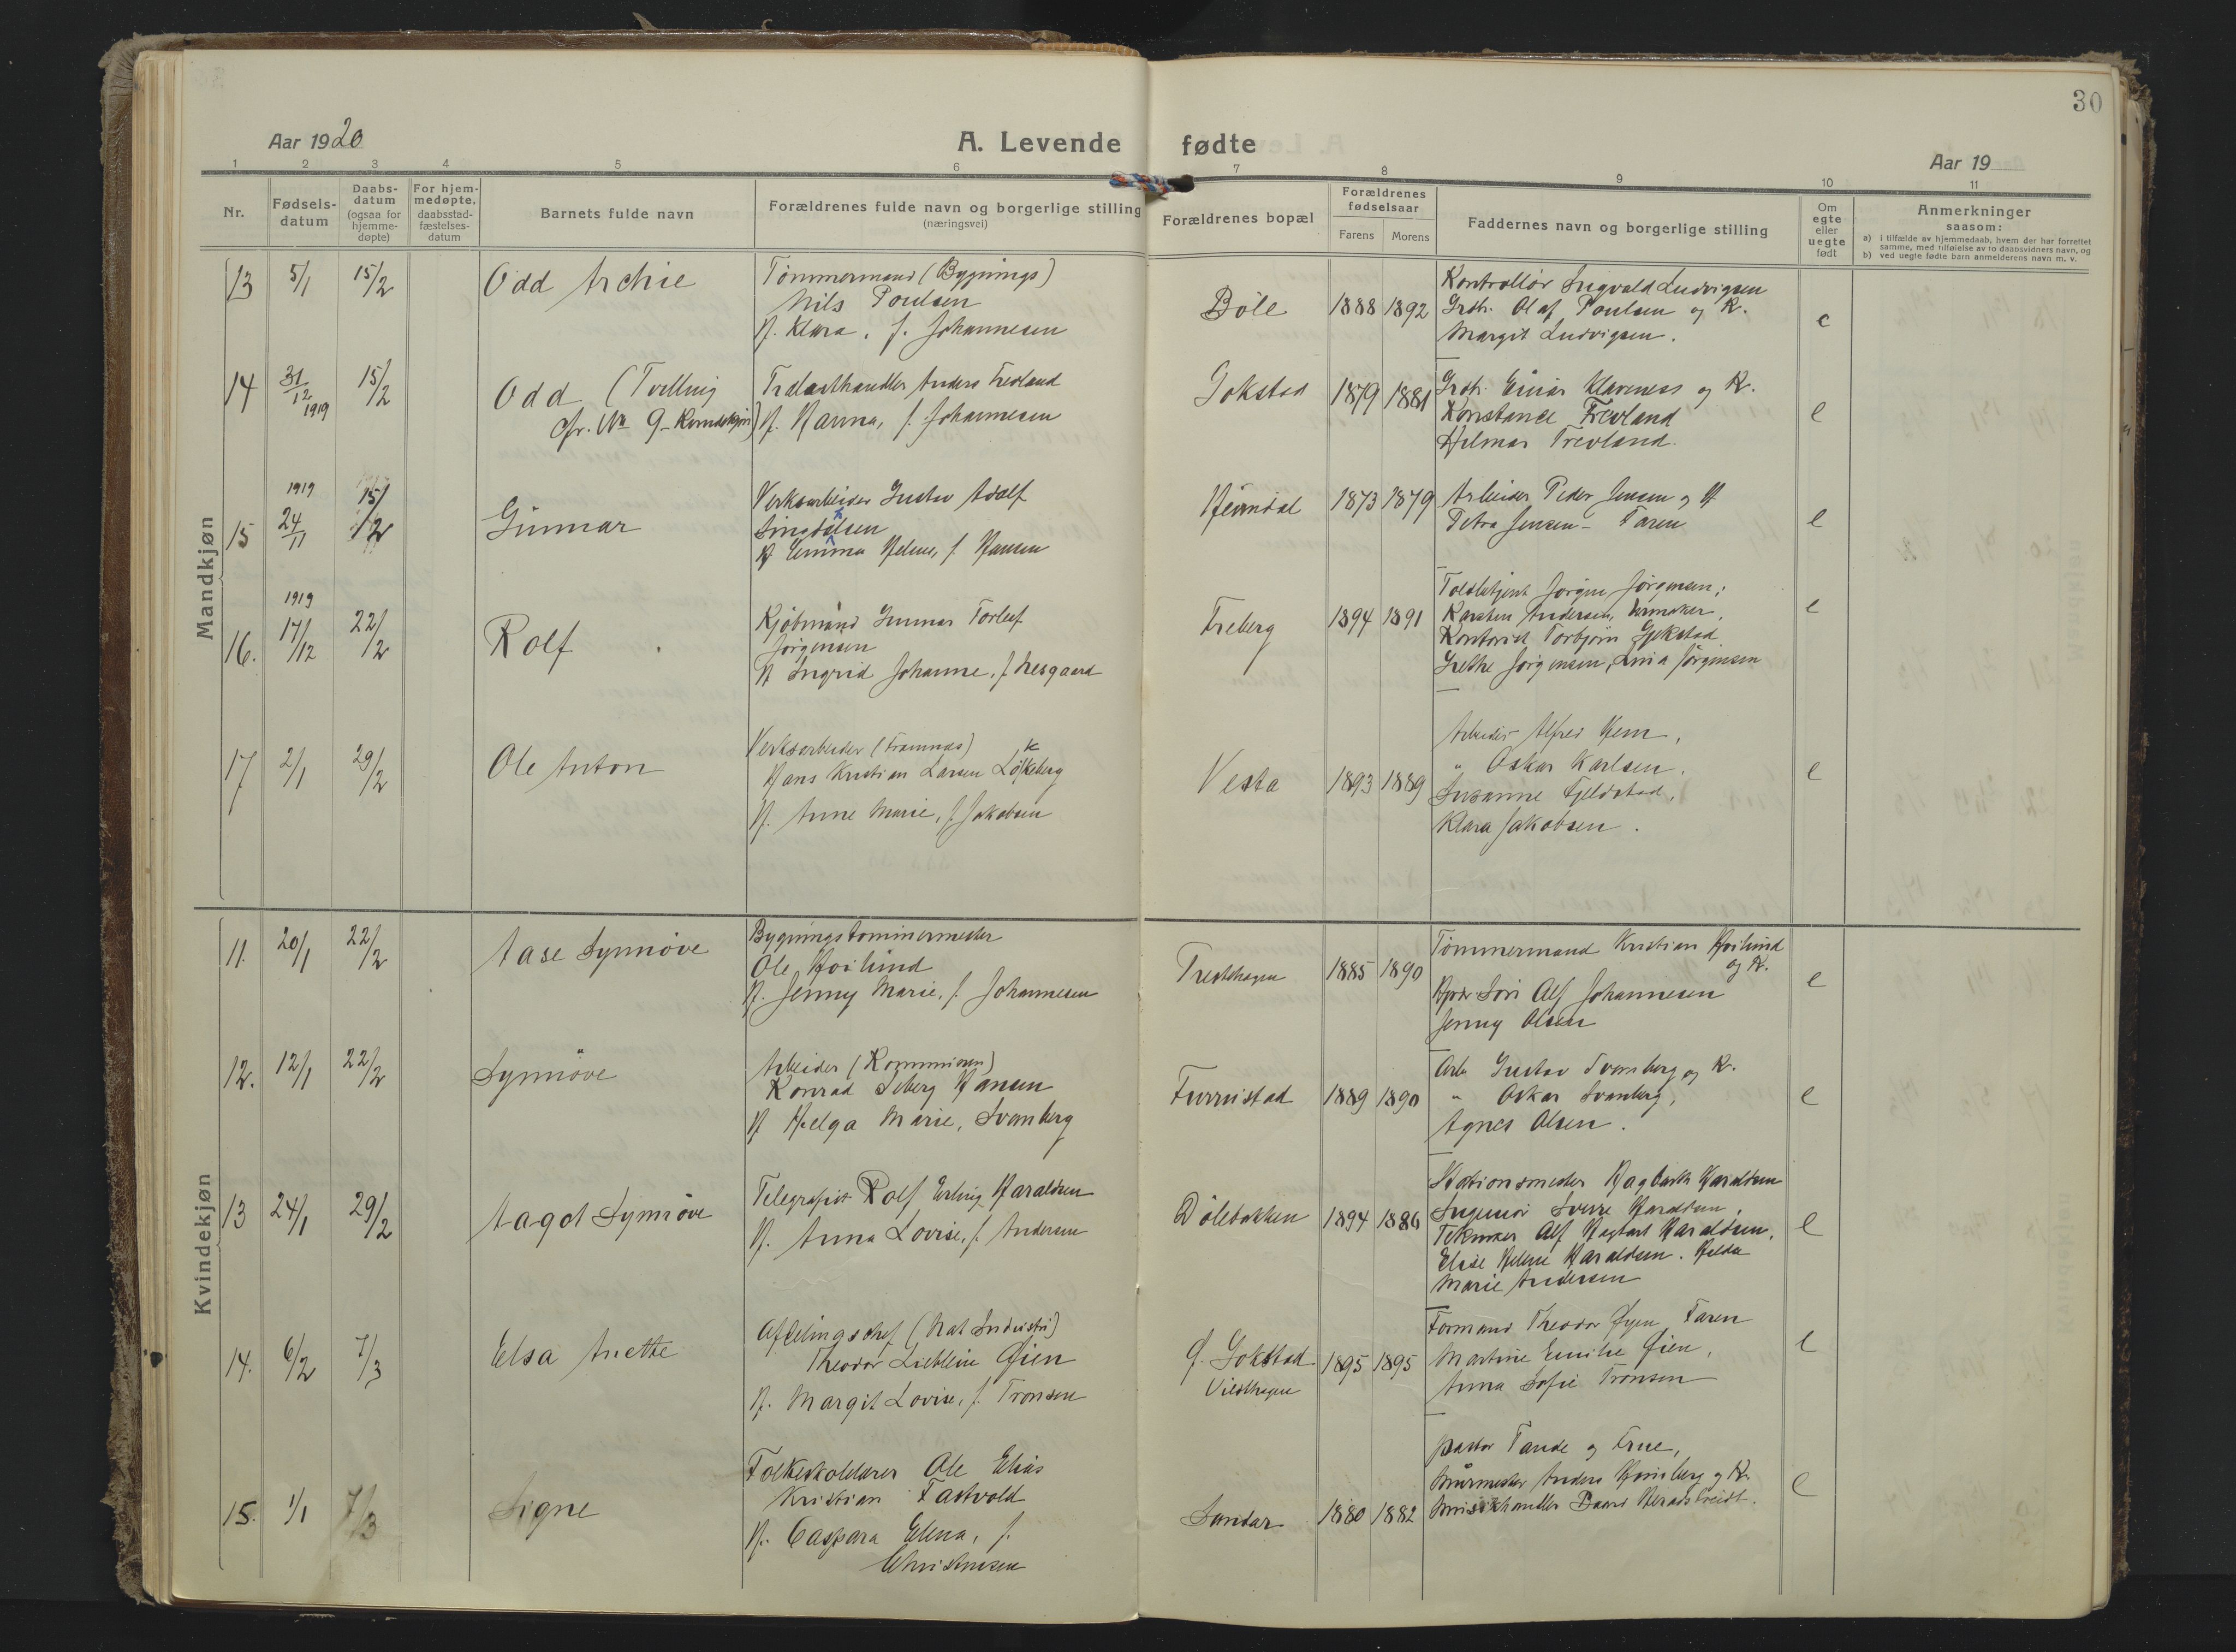 30
Aar 1920
A. Levende fødte
Aar 19
1 2 3 4 5 6 7 8 9 10 11
Nr.
Fødsels-
datum
Daabs-
datum
(ogsaa for
hjemme-
døpte)
For hjem-
medøpte.
daabsstad-
fæstelses-
datum
Barnets fulde navn
Forældrenes fulde navn og borgerlige stilling
(næringsvei)
Forældrenes bopæl
Forældrenes
fødselsaar
Farens Morens
Faddernes navn og borgerlige stilling
Om
egte
eller
uegte
født
Anmerkninger
saasom:
a) i tilfælde av hjemmedaab, hvem der har forrettet
samme, med tilføielse av to daabsvidners navn, og
b) ved uegte fødte barn anmelderens navn m. v.
Mandkjøn
13 5/1 15/2 Odd Archie
Tømmermand (Bygnings)
Nils Poulsen
H. Klara, f. Johannesen
Bøle 1888 1892
Kontrollør Sigvald Ludvigsen
Grdr. Olaf Poulsen og K.
Margit Ludvigsen.
e
14 31/12 1919 15/2 Odd (Tvilling
cfr. No 9 - Kvindekjøn)
Trælasthandler Anders Trevland
H. Hanna, f. Johannesen
Gokstad 1879 1881
Grdr. Einar Klaveness og K.
Konstance Trevland
Hilmar Trevland.
e
15 1919 24/11 15/2 Gunnar
Verksarbeider Gustav Adolf
Lingdalsen
H Emma Helene, f. Hansen
Heimdal 1873 1879
Arbeider Peder Jensen og H
Petra Jensen - Faren
e
16. 1919 17/12 22/2 Rolf
Kjøbmand Gunnar Torleif
Jørgensen
H Ingrid Johanne, f. Nesgaard
Freberg 1894 1891
Toldbetjent Jørgen Jørgensen;
Karsten Andersen, urmaker,
Kontorist Torbjørn Gjekstad
Grethe Jørgensen, Lina Jørgensen
e
17 2/1 29/2 Ole Anton
Verksarbeider (Framnæs)
Hans Kristian Larsen Løkkeberg
H. Anne Marie, f. Jakobsen
Vesta 1893 1889
Arbeider Alfred Hem,
" Oskar Karlsen,
Susanne Fjeldstad,
Klara Jakobsen.
e
Kvindekjøn
11. 20/1 22/2 Aase Synnøve
Bygningstømmermester
Ole Høilund
H. Jenny Marie, f. Johannesen
1885 1890
Tømmermand Kristian Høilund
og K.
Alf Johannesen
Jenny Olsen
e
12. 12/1 22/2 Synnøve
Arbeider (Kommunen)
Konrad Seberg Hansen
H Helga Marie, Svanberg
Furrustad 1889 1890
Arb. Gustav Svanberg og K.
" Oskar Svanberg,
Agnes Olsen.
e
13 24/1 29/2 Aagot Synnøve
Telegrafist Rolf Erling Haraldsen
H. Anna Lovise, f. Andersen
Dølebakken 1894 1886
Stationsmester Hagbarth Haraldsen
Ingeniør Sverre Haraldsen,
Tekniker Alf Hagbart Haraldsen,
Elise Helene Haraldsen. Hilda
Marie Andersen
e
14. 6/2 7/3 Elsa Anette
Afdelingschef (Nat Industri)
Theodor Lieblein Øien
H. Margit Lovise, f. Tronsen
Ø. Gokstad
1895 1895
Formand Theodor Øyen Faren
Martine Emilie Øien,
Anna Sofie Tronsen
e
15. 1/1 7/3 Signe
Folkeskolelærer Ole Elias
Kristian Fastvold
H. Caspara Elena, f.
Christensen
Sandar 1880 1882
pastor Tande og Frue,
Murmester Anders og K.
Musikhandler
e